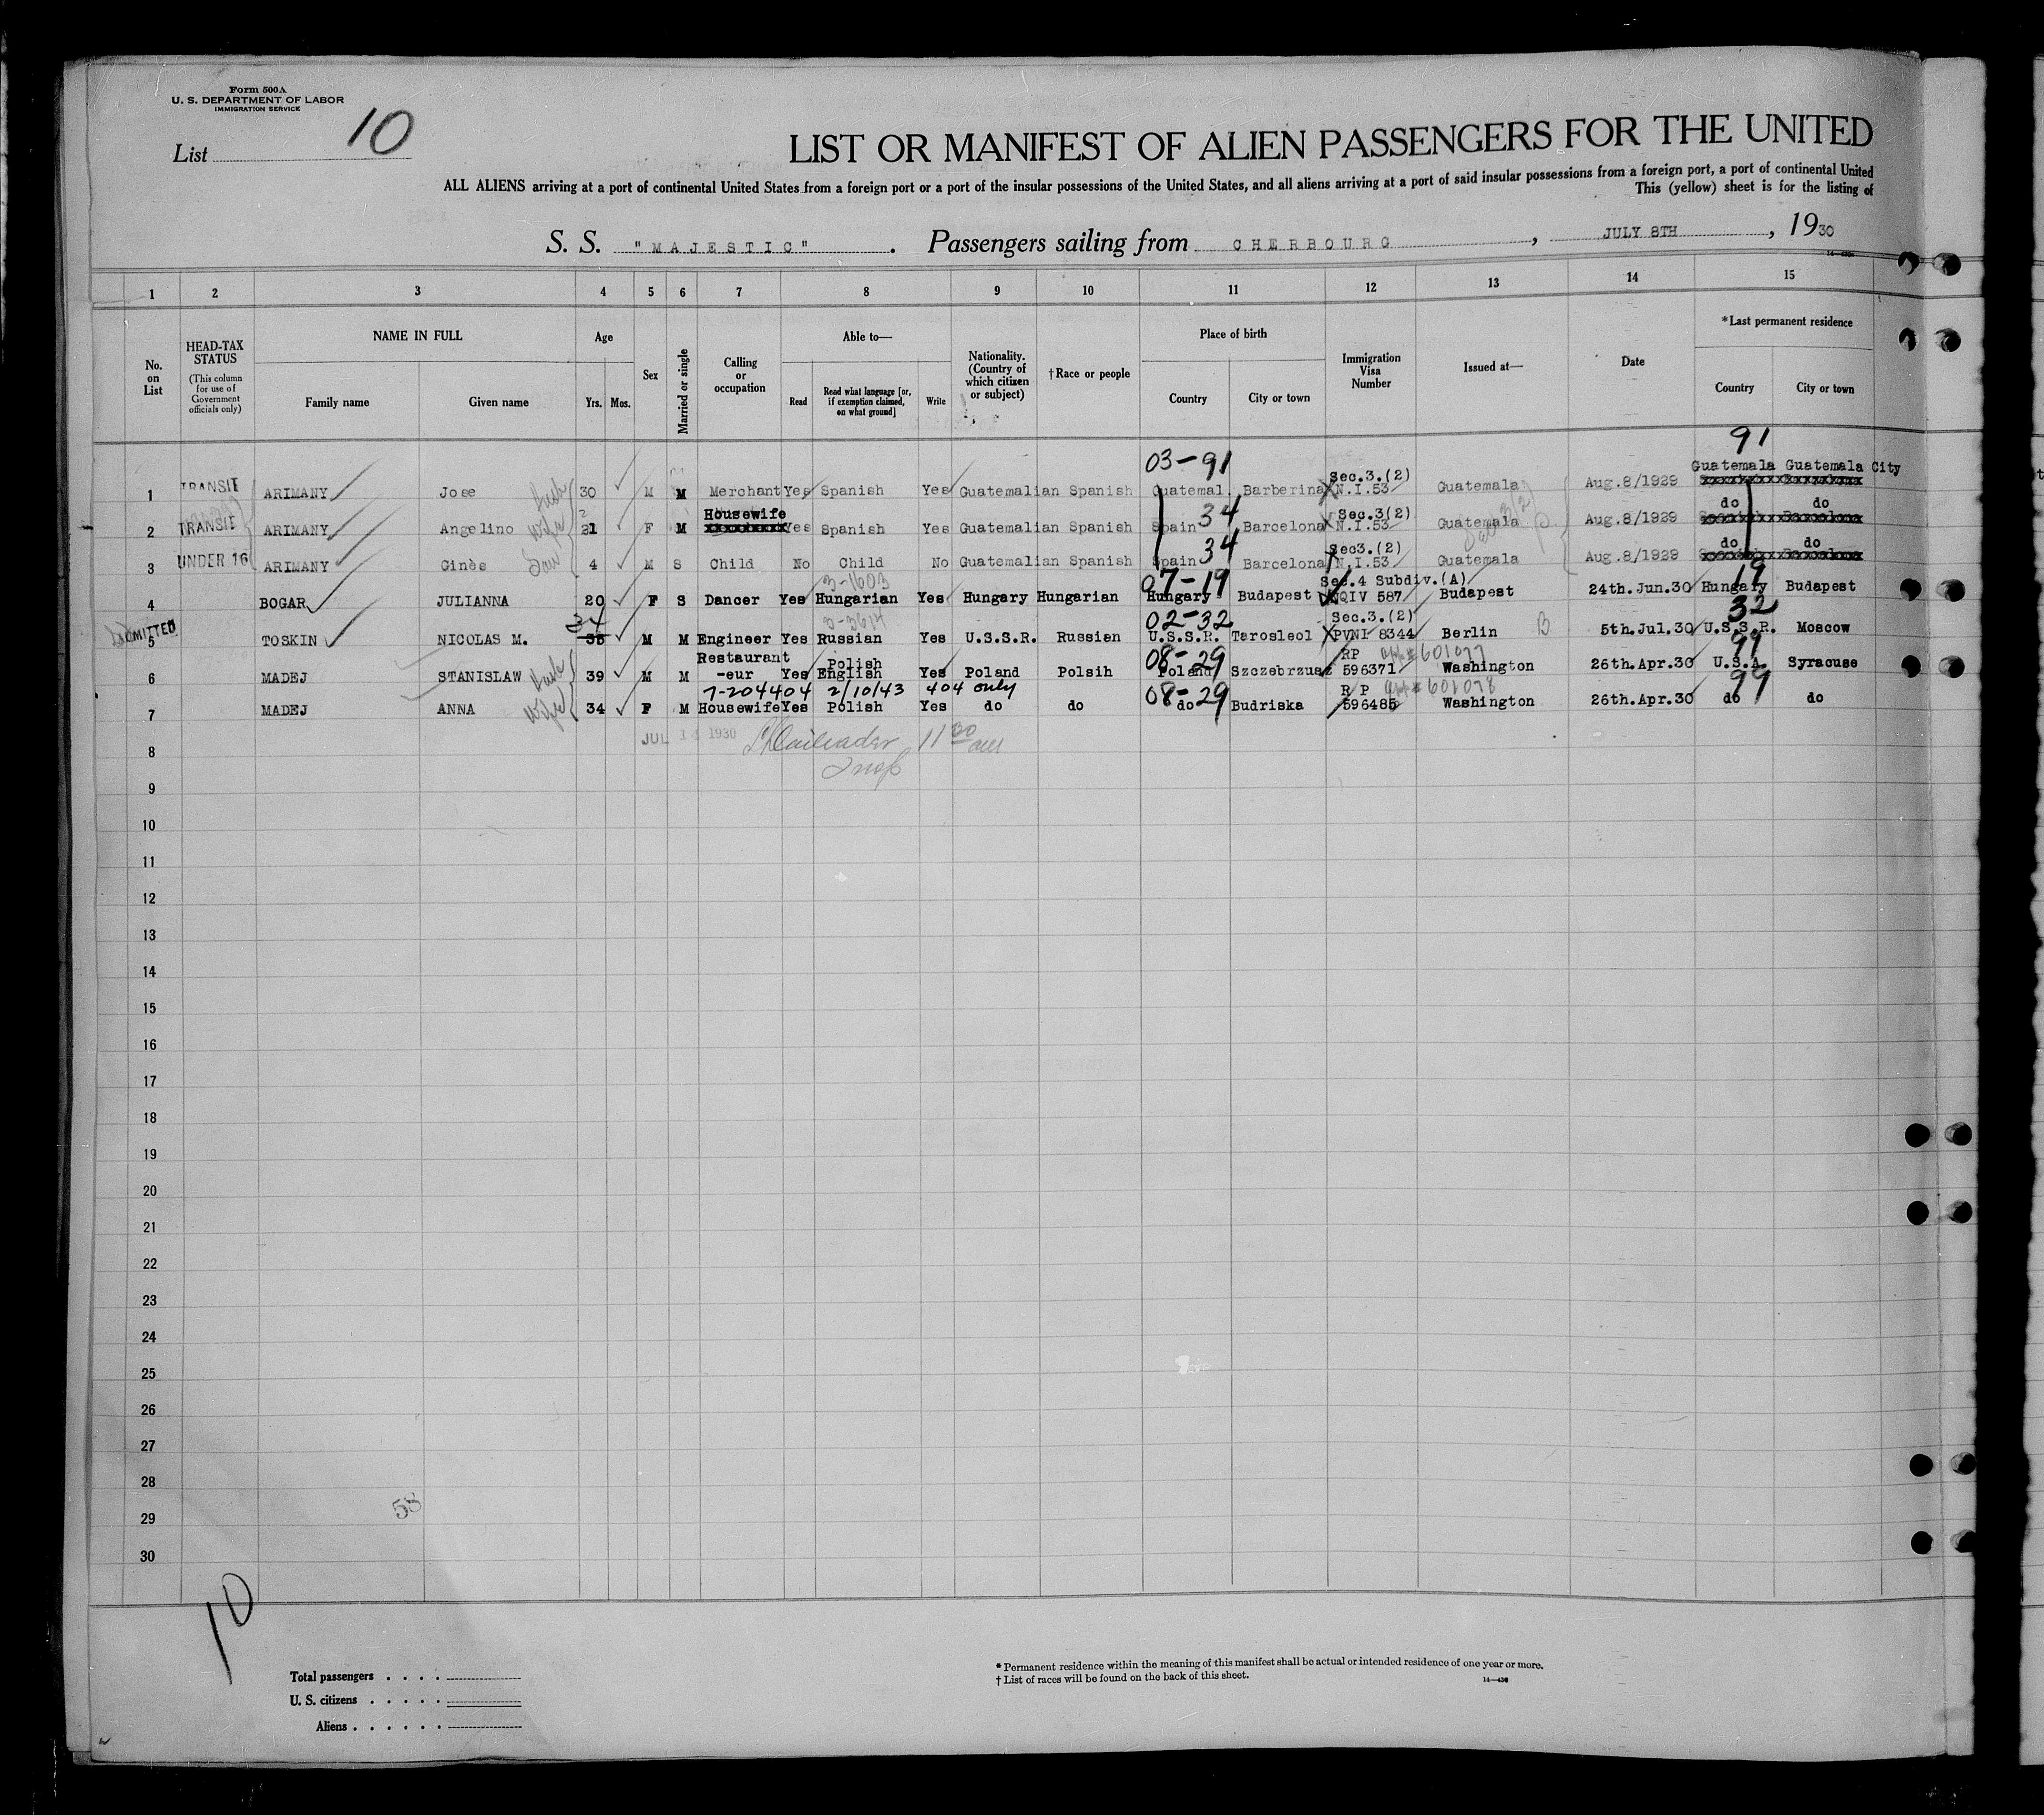 Form 500A
U. S. DEPARTMENT OF LABOR
IMMIGRATION SERVICE
List 10
LIST OR MANIFEST OF ALIEN PASSENGERS FOR THE UNITED
ALL ALIENS arriving at a port of continental United States from a foreign port or a port of the insular possessions of the United States, and all aliens arriving at a port of said insular possessions from a foreign port, a port of continental United
This (yellow) sheet is for the listing of
S. S. "MAJESTIC". Passengers sailing from CHERBOURG, JULY 8TH, 1930
1 2 3 4 5 6 7 8 9 10 11 12 13 14 15
No. on List
HEAD-TAX STATUS
(This column for use of Government officials only)
NAME IN FULL
Family name Given name
Age
Yrs. Mos.
Sex
Married or single
Calling or occupation
Able to—
Read
Read what language [or, if exemption claimed, on what ground]
Write
Nationality. (Country of which citizen or subject)
†Race or people
Place of birth
Country City or town
Immigration Visa Number
Issued at—
Date
*Last permanent residence
Country City or town
03-91 91
Sec.3.(2) Guatemala Guatemala City
1 TRANSIT ARIMANY Jose 30 M M Merchant Yes Spanish Yes Guatemalian Spanish Guatemal Barberina N.I.53 Guatemala Aug.8/1929
Housewife 34 Sec.3(2) do do
2 TRANSIT ARIMANY Angelino Wife 21 F M Yes Spanish Yes Guatemalian Spanish Spain Barcelona N.I.53 Guatemala Aug.8/1929
34 Sec3.(2) do do
3 UNDER 16 ARIMANY Ginès 4 M S Child No Child No Guatemalian Spanish Spain Barcelona N.I.53 Guatemala Aug.8/1929
3-1603 07-19 Sec.4 Subdiv.(A) 19
4 BOGAR JULIANNA 20 F S Dancer Yes Hungarian Yes Hungary Hungarian Hungary Budapest NQIV 587 Budapest 24th.Jun.30 Hungary Budapest
34 02-32 Sec.3.(2) 32
5 ADMITTED TOSKIN NICOLAS M. 35 M M Engineer Yes Russian Yes U.S.S.R. Russien U.S.S.R. Terosleol PVNI 8344 Berlin B 5th.Jul.30 U.S.S.R. Moscow
Restaurant Polish 08-29 RP 601077 99
6 MADEJ STANISLAW Husb 39 M M -eur Yes English Yes Poland Polsih Poland Szczebrzusz 596371 Washington 26th.Apr.30 U.S.A. Syracuse
7-204404 2/10/43 404 only 08-29 R P 601078 99
7 MADEJ ANNA Wife 34 F M Housewife Yes Polish Yes do do do Budriska 596485 Washington 26th.Apr.30 do do
JUL 14 1930 11 30 am
Insp
8
9
10
11
12
13
14
15
16
17
18
19
20
21
22
23
24
25
26
27
28
58
29
30
10
Total passengers
U. S. citizens
Aliens
* Permanent residence within the meaning of this manifest shall be actual or intended residence of one year or more.
† List of races will be found on the back of this sheet.
14—430